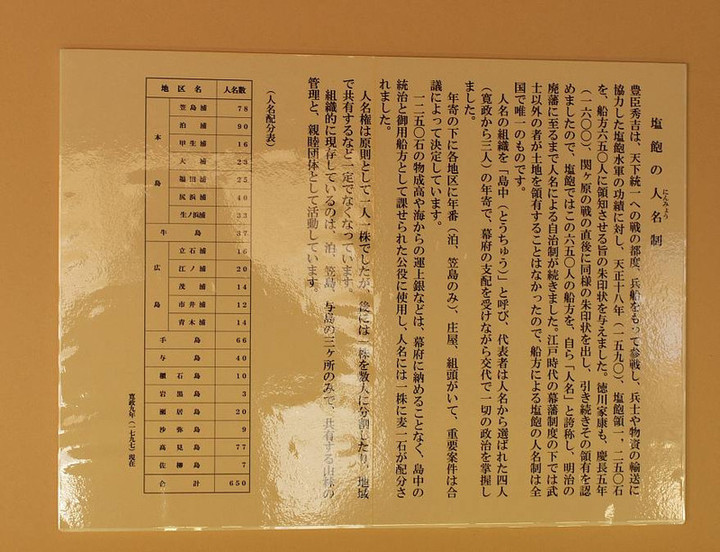 塩飽の人名制
にんみょう
豊臣秀吉は、天下統一への戦の都度、兵船をもって参戦し、兵士や物資の輸送に
協力した塩飽水軍の功績に対し、天正十八年（一五九〇）、塩飽領一、二五〇石
を、船方六五〇人に領知させる旨の朱印状を与えました。徳川家康も、慶長五年
（一六〇〇）、関ヶ原の戦の直後に同様の朱印状を出し、引き続きその領有を認
めましたので、塩飽ではこの六五〇人の船方を、自ら「人名」と誇称し、明治の
廃藩に至るまで人名による自治制が続きました。江戸時代の幕藩制度の下では武
士以外の者が土地を領有することはなかったので、船方による塩飽の人名制は全
国で唯一のものです。
人名の組織を「島中（とうちゅう）」と呼び、代表者は人名から選ばれた四人
（寛政から三人）の年寄で、幕府の支配を受けながら交代で一切の政治を掌握し
ました。
年寄の下に各地区に年番（泊、笠島のみ）、庄屋、組頭がいて、重要案件は合
議によって決定しています。
一二五〇石の物成高や海からの運上銀などは、幕府に納めることなく、島中の
統治と御用船方として課せられた公役に使用し、人名には一株に麦一石が配分さ
れました。
人名権は原則として一人一株でしたが、後には一株を数人に分割したり、地域
で共有するなど一定でなくなっています。
組織的に現存しているのは、泊、笠島、与島の三ヶ所のみで、共有する山林の
管理と、親睦団体として活動しています。
（人名配分表）
地区名 人名数
本島 笠島浦 78
泊浦 90
甲生浦 16
大浦 23
福田浦 25
尻浜浦 40
生ノ浜浦 33
牛島 37
広島 立石浦 16
江ノ浦 20
茂浦 14
市井浦 12
青木浦 14
手島 66
与島 40
櫃石島 10
岩黒島 3
瀬居島 20
沙弥島 9
高見島 77
佐柳島 7
合計 650
寛政九年（一七九七）現在